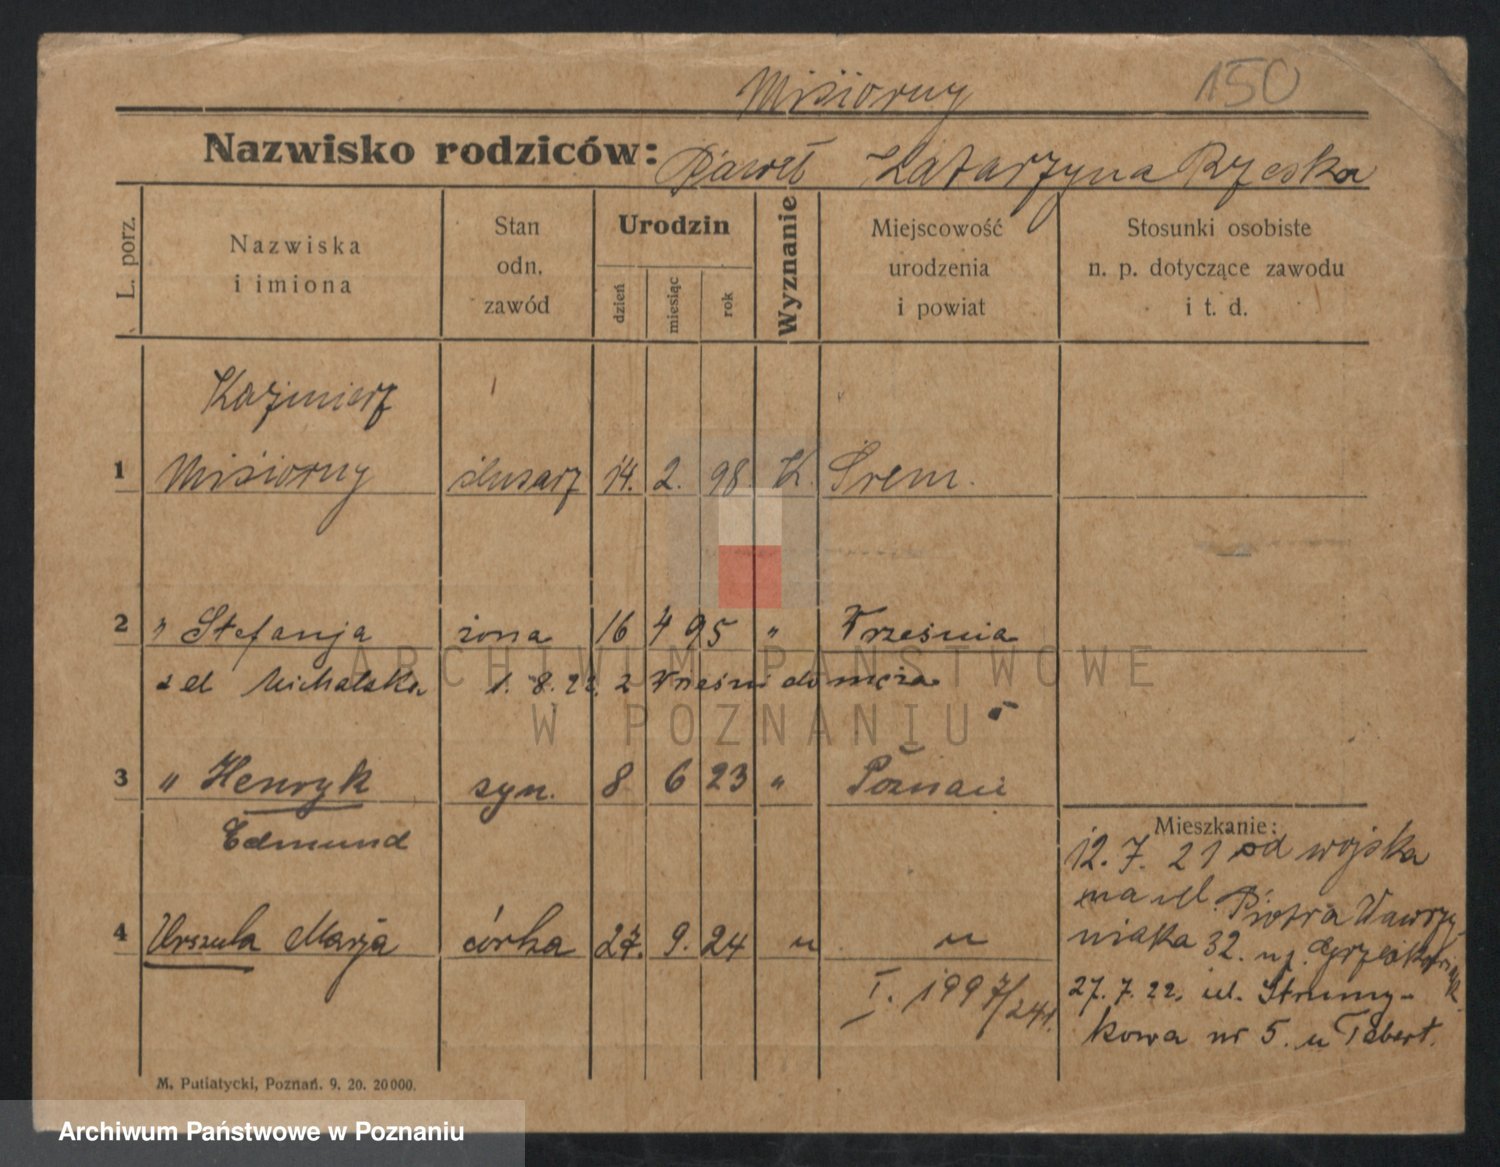 Misiorny 150
Nazwisko rodziców: Paweł Katarzyna Rzeska
L. porz.
Nazwiska
i imiona
Stan
odn.
zawód
Urodzin
dzień
miesiąc
rok
Wyznanie
Miejscowość
urodzenia
i powiat
Stosunki osobiste
n. p. dotyczące zawodu
i t. d.
Kazimierz
1 Misiorny ślusarz 14. 2. 98 K. Śrem.
2 " Stefanja żona 16 4 95 " Września
Michalska 1. 8. 22. z Wrześni do męża
3 " Henryk syn. 8 6 23 " Poznań
Edmund
4 Urszula Marja córka 27. 9. 24 " "
I. 1997/24
Mieszkanie:
12. 7. 21 od wojska
na ul. Piotra Wawrzy-
niaka 32. u
27. 7. 22. ul. Strumy-
kowa nr 5. u Tabert.
M. Putiatycki, Poznań. 9. 20. 20000.
ARCHIWUM PAŃSTWOWE
W POZNANIU
Archiwum Państwowe w Poznaniu